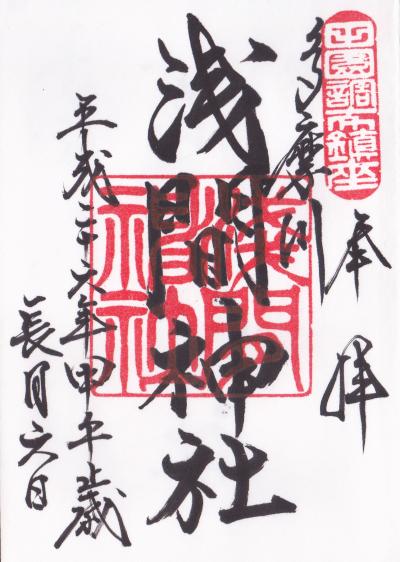 奉拝
多摩川
浅間神社
平成二十六年甲午歳
長月六日
浅間神社